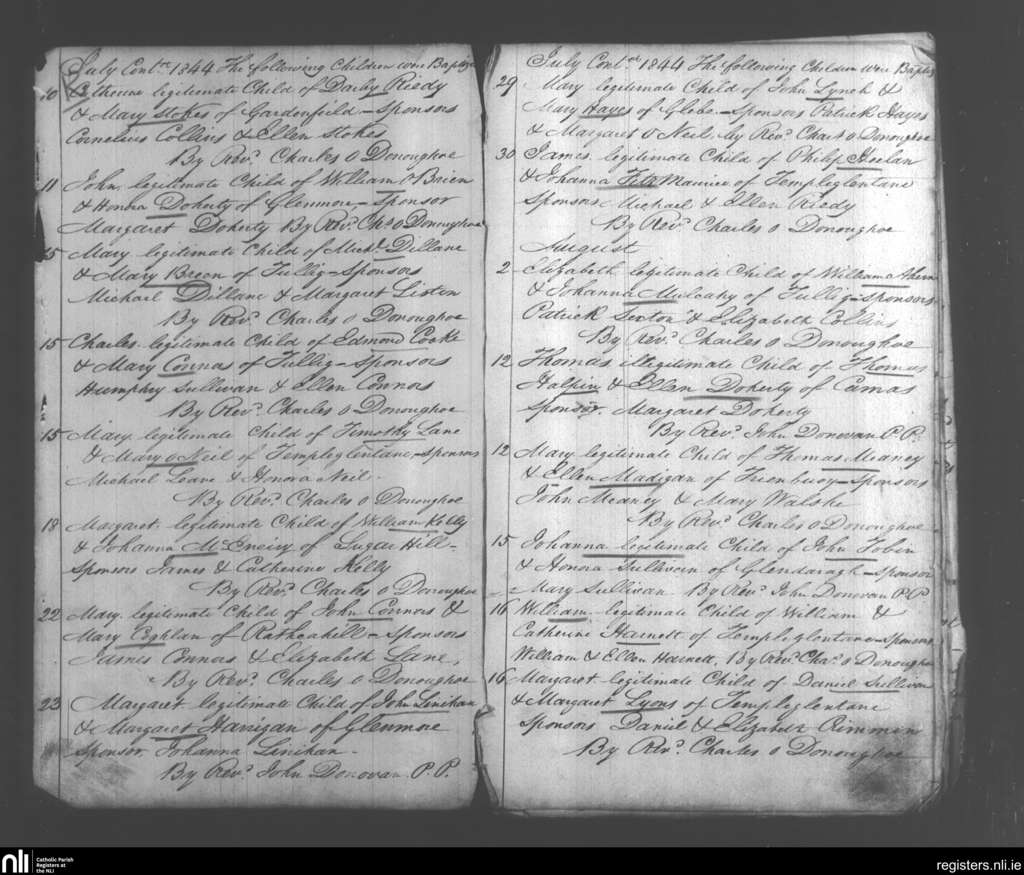 July Contd. 1844 The following Children were Baptzd
10 legitimate Child of Darby Riedy
& Mary Stokes of Gardenfield - Sponsors
Cornelius Collins & Ellen Stokes
By Revd. Charles o Donoughoe
11 John legitimate Child of William o Brien
& Honora Doherty of Glenmore - Sponsor
Margaret Doherty By Revd. Chs. o Donoughoe
15 Mary legitimate Child of Michl. Dillane
& Mary Breen of Tullig - Sponsors
Michael Dillane & Margaret Liston
By Revd. Charles o Donoughoe
15 Charles legitimate Child of Edmond Cooke
& Mary Connors of Tullig - Sponsors
Humphry Sullivan & Ellen Connors
By Revd. Charles o Donoughoe
15 Mary legitimate Child of Timothy Lane
& Mary o Neil of Templeglentane - Sponsors
Michael Leane & Honora Neil -
By Revd. Charles o Donoughoe
18 Margaret legitimate Child of William Kelly
& Johanna McEneiry of Sugar Hill -
Sponsors James & Catherine Kelly
By Revd. Charles o Donoughoe
22 Mary legitimate Child of John Connors &
Mary Coghlan of Rathcahill - Sponsors
James Connors & Elizabeth Lane,
By Revd. Charles o Donoughoe
23 Margaret legitimate Child of John Linihan
& Margaret Hanigan of Glenmore
Sponsor Johanna Linihan -
By Revd. John Donovan P.P.
July Contd. 1844 The following Children were Baptzd
29 Mary legitimate Child of John Lynch &
Mary Hayes of Glebe - Sponsors Patrick Hayes
& Margaret o Neil by Revd. Chars. o Donoughoe
30 James legitimate Child of Philip Heelan
& Johanna FitzMaurice of Templeglentane
Sponsors Michael & Ellen Riedy
By Revd. Charles o Donoughoe
August
2 Elizabeth legitimate Child of William Ahern
& Johanna Mulcahy of Tullig - Sponsors
Patrick Sexton & Elizabeth Collins
By Revd. Charles o Donoughoe
12 Thomas illegitimate Child of Thomas
Halpin & Ellen Doherty of Camas
Sponsor Margaret Doherty
By Revd. John Donovan P.P.
12 Mary legitimate Child of Thomas Meaney
& Ellen Madigan of - Sponsors
John Meaney & Mary Walshe
By Revd. Charles o Donoughoe
15 Johanna legitimate Child of John Tobin
& Honora Sullivan of Glendaragh - Sponsor
Mary Sullivan By Revd. John Donovan P.P.
16 William legitimate Child of William &
Catherine Harnett of Templeglentane - Sponsors
William & Ellen Harnett, By Revd. Chas. o Donoughoe
16 Margaret legitimate Child of Daniel Sullivan
& Margaret Lyons of Templeglentane
Sponsors Daniel & Elizabeth
By Revd. Charles o Donoughoe
nli
Catholic Parish
Registers at
the NLI
registers.nli.ie